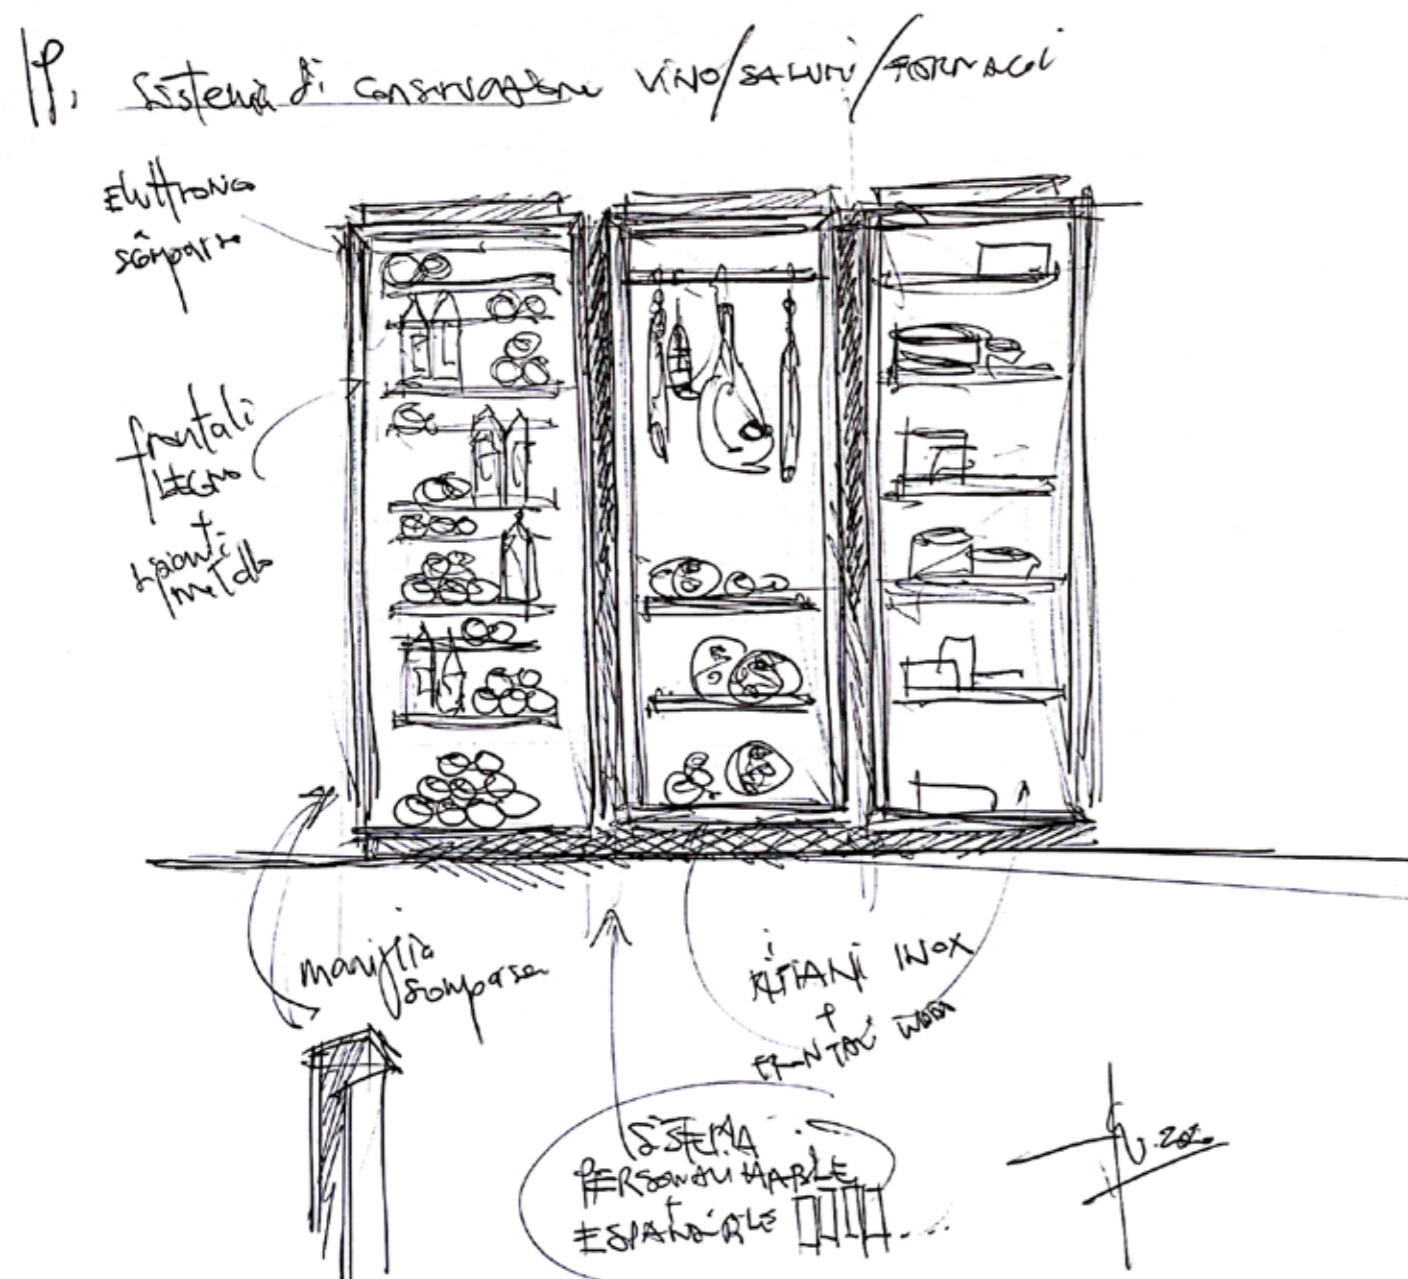 IP. Sistema di conservazione VINO/SALUMI/FORMAGGI
Elettronica
scomparsa
frontali
LEGNO
metallo
maniglia
scomparsa
RIPIANI INOX
+
FRONTALI WOOD
SISTEMA
PERSONALIZZABILE
+
ESPANDIBILE